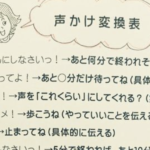 声かけ変換表
しなさいっ！→あと何分で終われそ
ってよ！→あと○分だけ待ってね（具体
！→声を「これくらい」にしてくれる？（
メ！→歩こうね（やっていいことを伝える
→止まってね（具体的に伝える）
しなさいっ！→5分で終われば、あと10